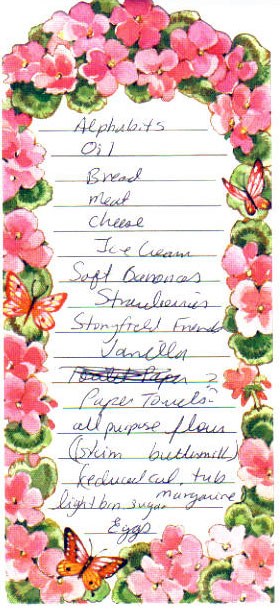 Alphabits
Oil
Bread
meat
cheese
Ice Cream
Soft Bananas
Strawberries
Stonyfield French
Vanilla
Toilet Paper ?
Paper Towels
all purpose flour
(skim buttermilk)
Reduced cal. tub
margarine
light brn. sugar
Eggs